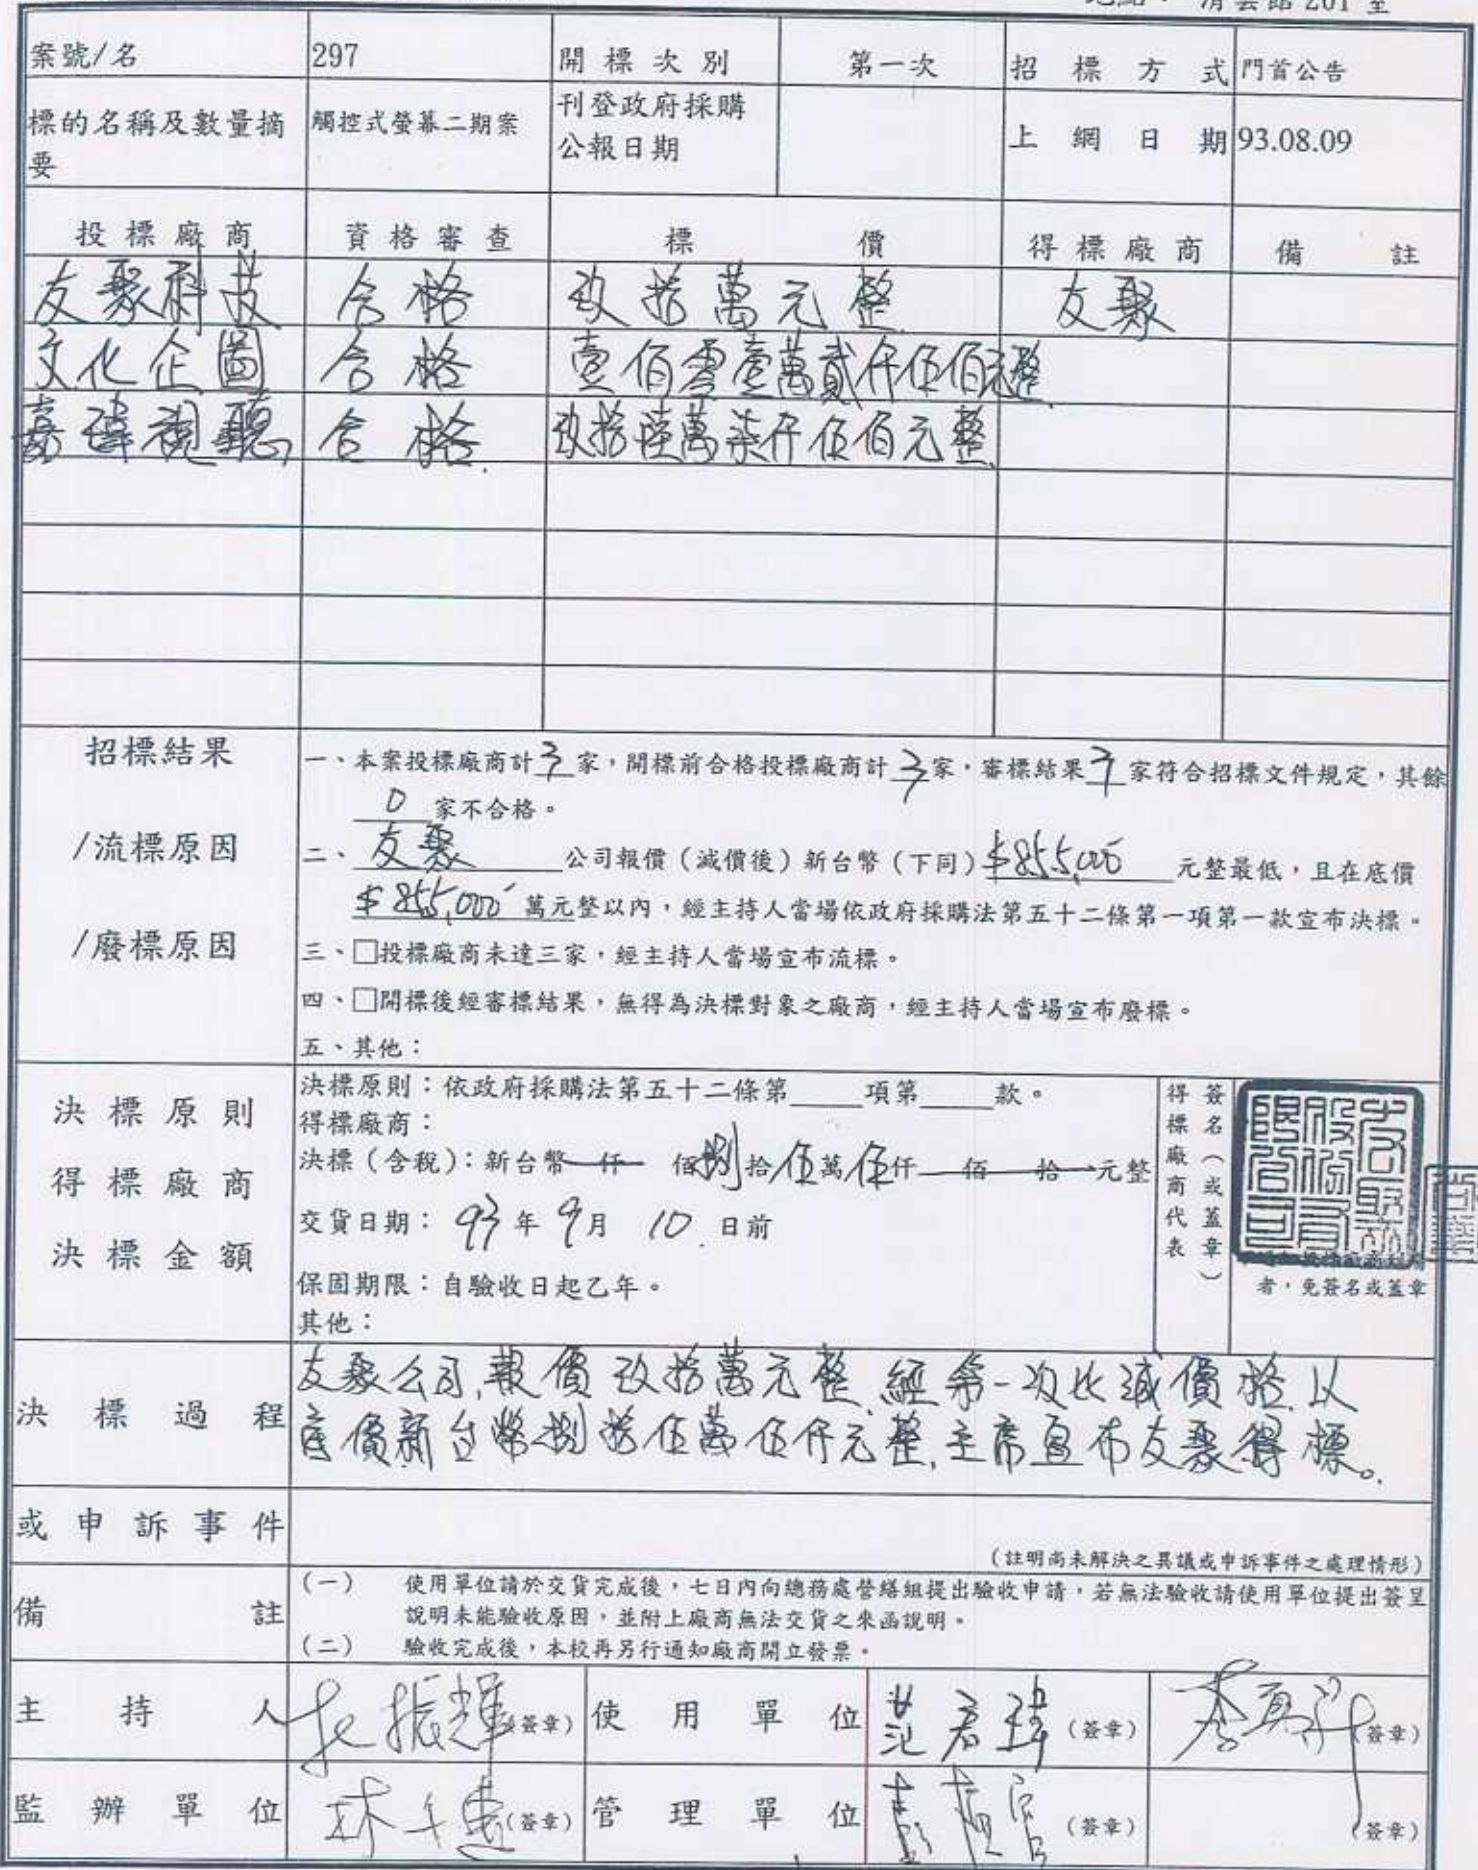 清雲館 201 室
案號/名 297 開標次別 第一次 招標方式 門首公告
標的名稱及數量摘要 觸控式螢幕二期案 刊登政府採購公報日期 上網日期 93.08.09
投標廠商 資格審查 標價 得標廠商 備註
友聚科技 合格 玖拾萬元整 友聚
文化企圖 合格 壹佰零壹萬貳仟伍佰元整
嘉瑋視聽 合格 玖拾陸萬柒仟伍佰元整
招標結果
/流標原因
/廢標原因
一、本案投標廠商計 3 家，開標前合格投標廠商計 3 家，審標結果 3 家符合招標文件規定，其餘
0 家不合格。
二、友聚 公司報價（減價後）新台幣（下同）$855,000 元整最低，且在底價
$855,000 萬元整以內，經主持人當場依政府採購法第五十二條第一項第一款宣布決標。
三、□投標廠商未達三家，經主持人當場宣布流標。
四、□開標後經審標結果，無得為決標對象之廠商，經主持人當場宣布廢標。
五、其他：
決標原則
得標廠商
決標金額
決標原則：依政府採購法第五十二條第____項第____款。
得標廠商：
決標（含稅）：新台幣 仟 佰捌拾伍萬伍仟 佰 拾 元整
交貨日期：93 年 9 月 10 日前
保固期限：自驗收日起乙年。
其他：
得標廠商代表
簽名（或蓋章）
者，免簽名或蓋章
決標過程
友聚公司,報價玖拾萬元整,經第一次比減價格,以
底價新台幣捌拾伍萬伍仟元整,主席宣布友聚得標。
或申訴事件
（註明尚未解決之異議或申訴事件之處理情形）
備註
（一） 使用單位請於交貨完成後，七日內向總務處營繕組提出驗收申請，若無法驗收請使用單位提出簽呈
說明未能驗收原因，並附上廠商無法交貨之來函說明。
（二） 驗收完成後，本校再另行通知廠商開立發票。
主持人 （簽章） 使用單位 范君瑋 （簽章） （簽章）
監辦單位 （簽章） 管理單位 （簽章） （簽章）